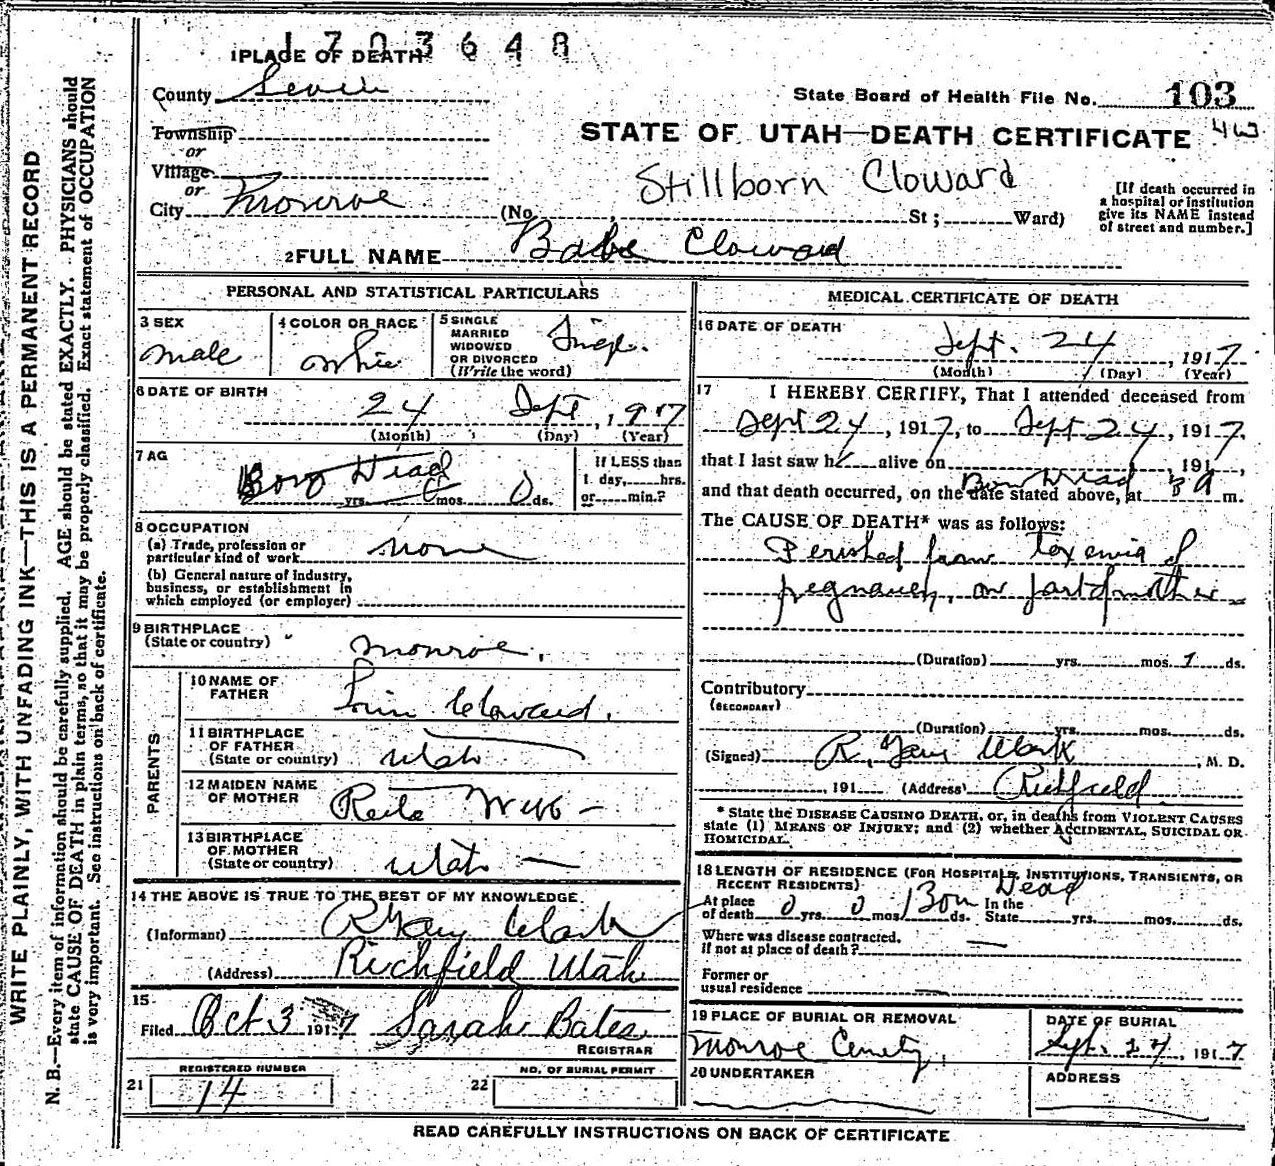 1703648
1PLACE OF DEATH
County Sevier
State Board of Health File No. 103
Township
or
STATE OF UTAH—DEATH CERTIFICATE 4w
Village
or
Stillborn Cloward
City Monroe (No. St; Ward)
[If death occurred in
a hospital or institution
give its NAME instead
of street and number.]
2FULL NAME Babe Cloward
PERSONAL AND STATISTICAL PARTICULARS
3 SEX
male
4 COLOR OR RACE
white
5 SINGLE
MARRIED
WIDOWED
OR DIVORCED
(Write the word)
Single.
6 DATE OF BIRTH
24 Sept, 1917
(Month) (Day) (Year)
7 AG
Born Dead
yrs. 0 mos. 0 ds.
If LESS than
1 day, hrs.
or min.?
8 OCCUPATION
(a) Trade, profession or
particular kind of work none
(b) General nature of industry,
business, or establishment in
which employed (or employer)
9 BIRTHPLACE
(State or country) Monroe.
PARENTS
10 NAME OF
FATHER Cloward.
11 BIRTHPLACE
OF FATHER
(State or country) Utah
12 MAIDEN NAME
OF MOTHER Reita Webb —
13 BIRTHPLACE
OF MOTHER
(State or country) Utah —
14 THE ABOVE IS TRUE TO THE BEST OF MY KNOWLEDGE
(Informant) R Gary Clark
(Address) Richfield Utah
15
Filed Oct 3 1917 Sarah Bates
REGISTRAR
REGISTERED NUMBER
21 14
NO. OF BURIAL PERMIT
22
MEDICAL CERTIFICATE OF DEATH
16 DATE OF DEATH
Sept. 24, 1917
(Month) (Day) (Year)
17 I HEREBY CERTIFY, That I attended deceased from
Sept 24, 1917, to Sept 24, 1917,
that I last saw h alive on , 191 ,
Born Dead
and that death occurred, on the date stated above, at 3 a m.
The CAUSE OF DEATH* was as follows:
Perished from toxemia of
pregnancy, on part of mother
(Duration) yrs. mos. 1 ds.
Contributory
(SECONDARY)
(Duration) yrs. mos. ds.
(Signed) R. Gary Clark, M. D.
, 191 (Address) Richfield
* State the DISEASE CAUSING DEATH, or, in deaths from VIOLENT CAUSES
state (1) MEANS OF INJURY; and (2) whether ACCIDENTAL, SUICIDAL OR
HOMICIDAL.
18 LENGTH OF RESIDENCE (FOR HOSPITALS, INSTITUTIONS, TRANSIENTS, OR
RECENT RESIDENTS)
At place In the
of death 0 yrs. 0 mos. Born ds. Dead State yrs. mos. ds.
Where was disease contracted,
if not at place of death? —
Former or
usual residence —
19 PLACE OF BURIAL OR REMOVAL
Monroe Cemetery,
DATE OF BURIAL
Sept. 27, 1917
20 UNDERTAKER
ADDRESS
READ CAREFULLY INSTRUCTIONS ON BACK OF CERTIFICATE
WRITE PLAINLY, WITH UNFADING INK—THIS IS A PERMANENT RECORD
N. B.—Every item of information should be carefully supplied. AGE should be stated EXACTLY. PHYSICIANS should
state CAUSE OF DEATH in plain terms, so that it may be properly classified. Exact statement of OCCUPATION
is very important. See instructions on back of certificate.